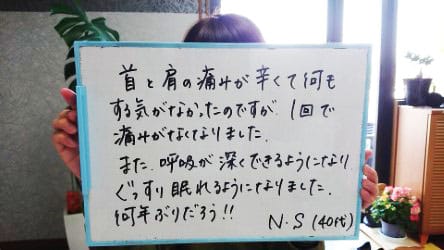 首と肩の痛みが辛くて何も
する気がなかったのですが、1回で
痛みがなくなりました。
また、呼吸が深くできるようになり
ぐっすり眠れるようになりました。
何年ぶりだろう!!
N.S(40代)